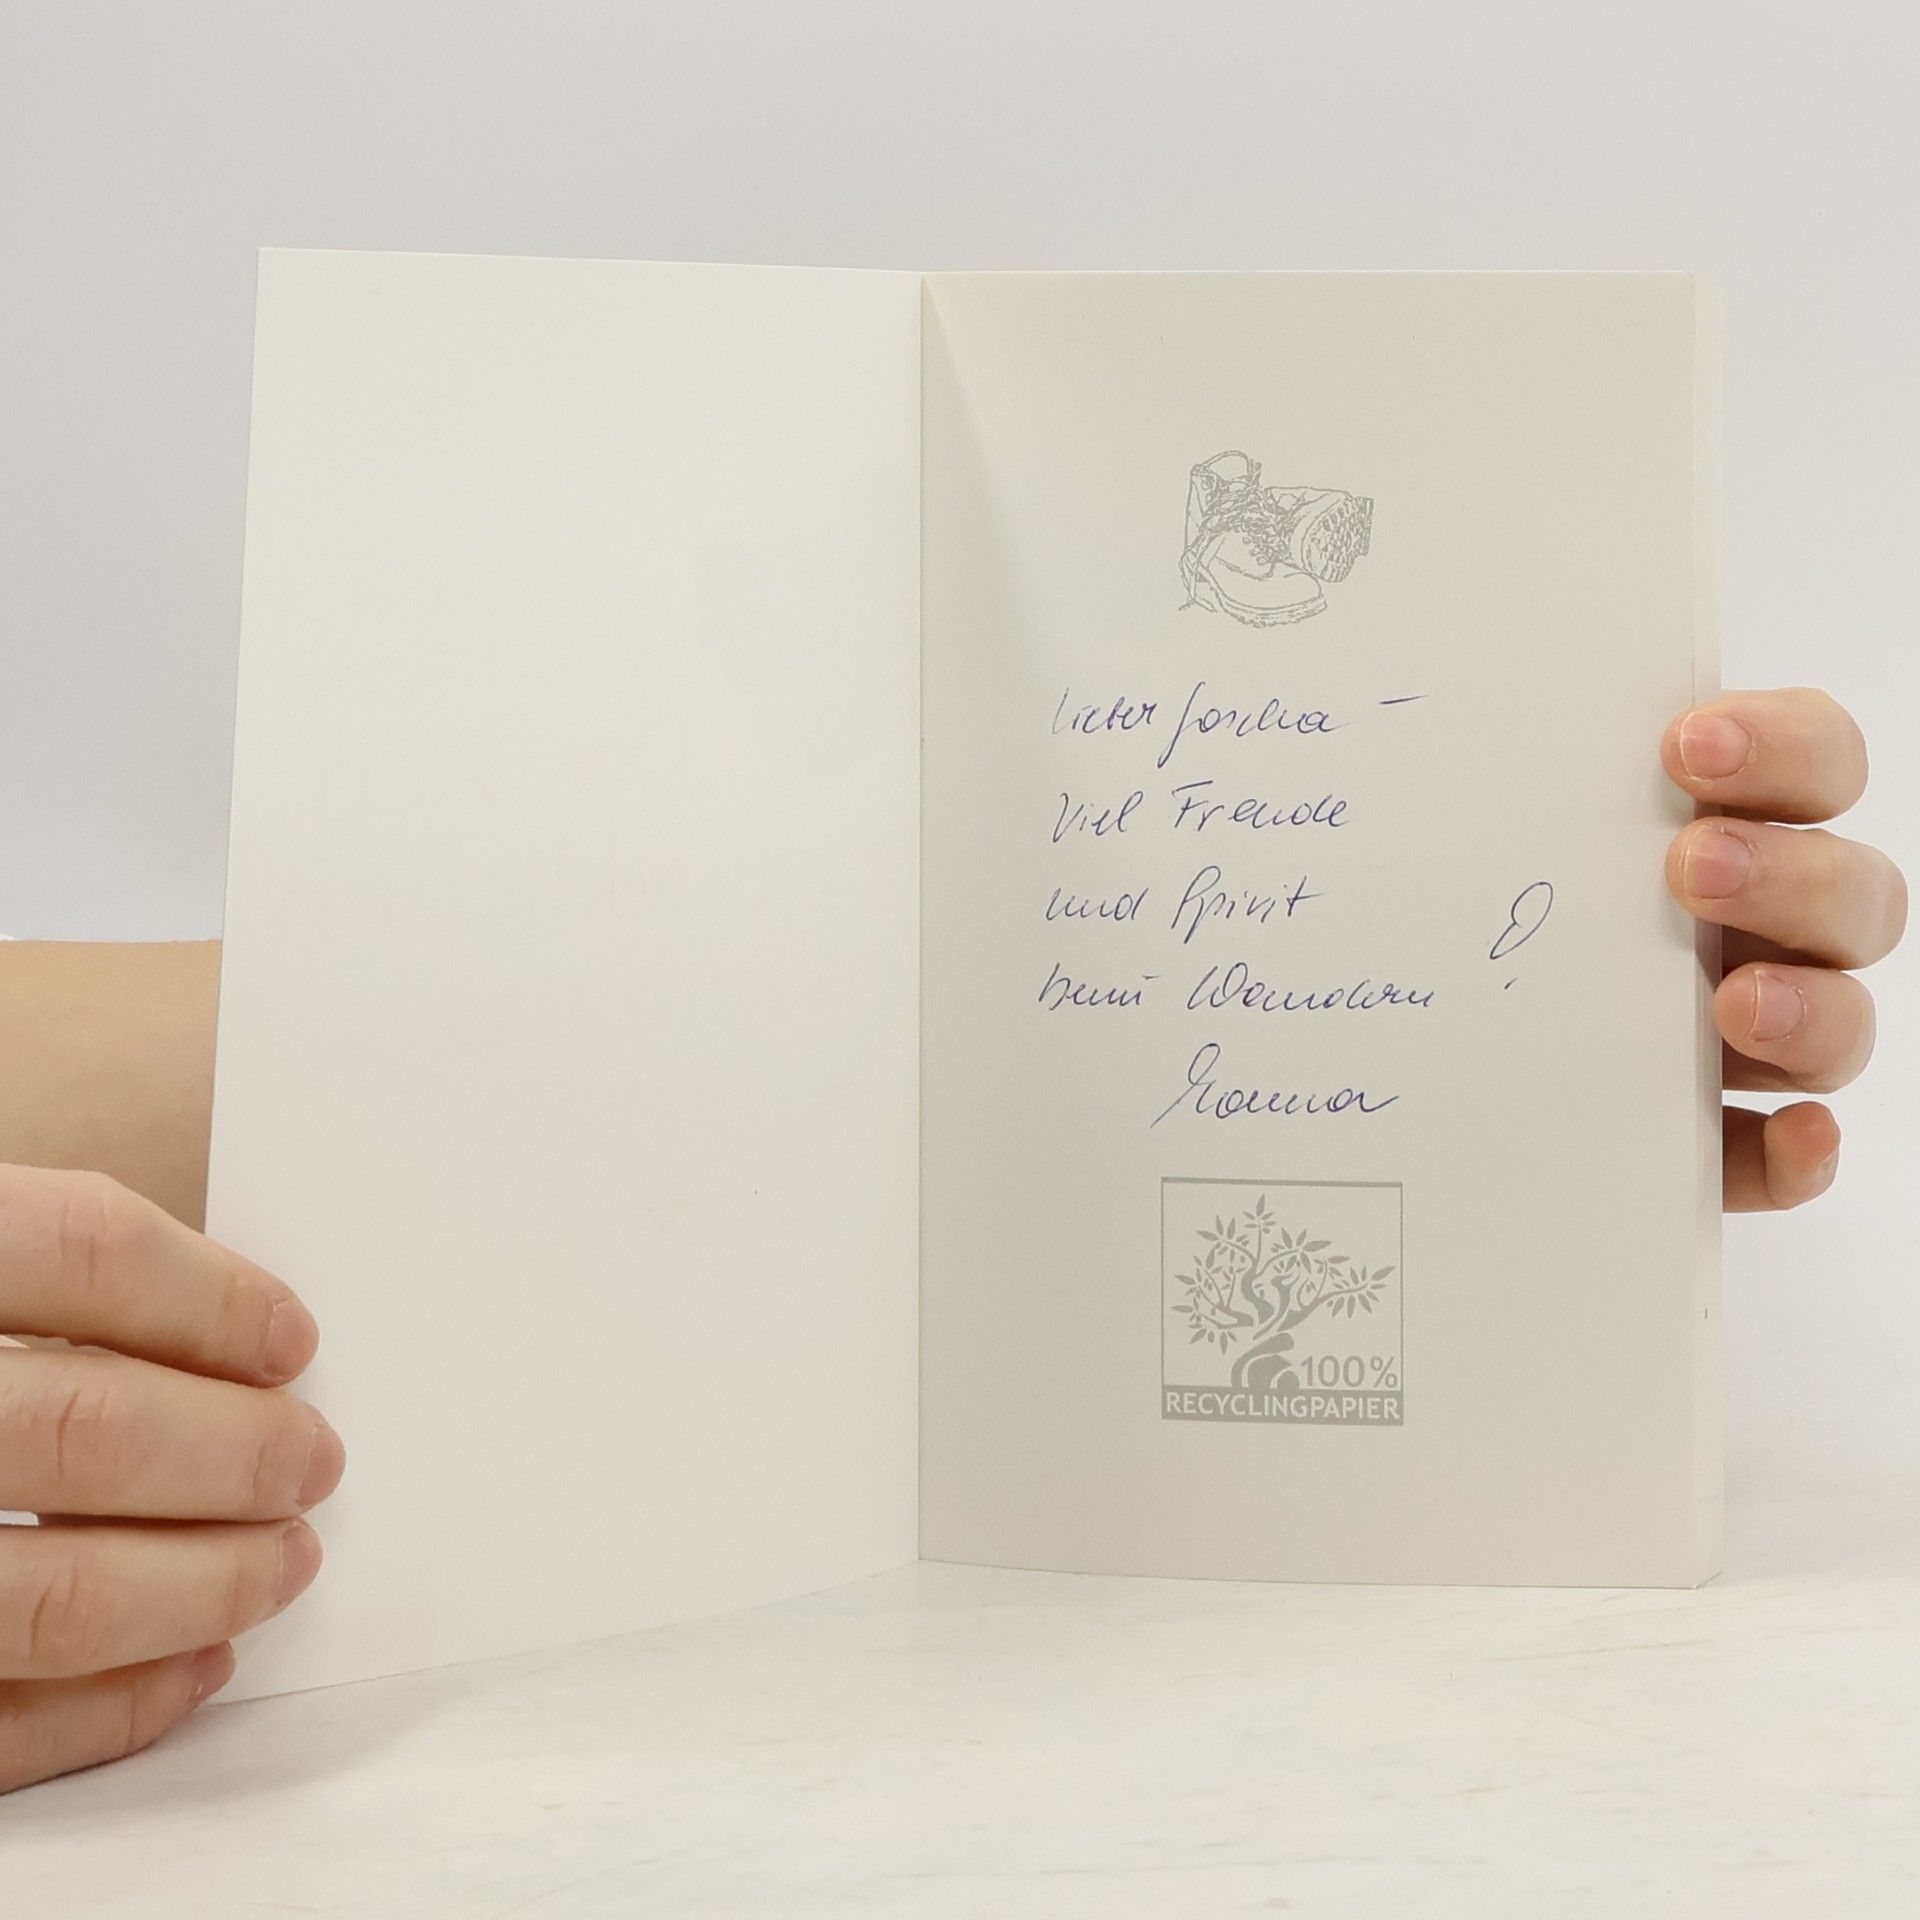 Lieber Joscha –
Viel Freude
und Spirit
beim Wandern!
100%
RECYCLINGPAPIER